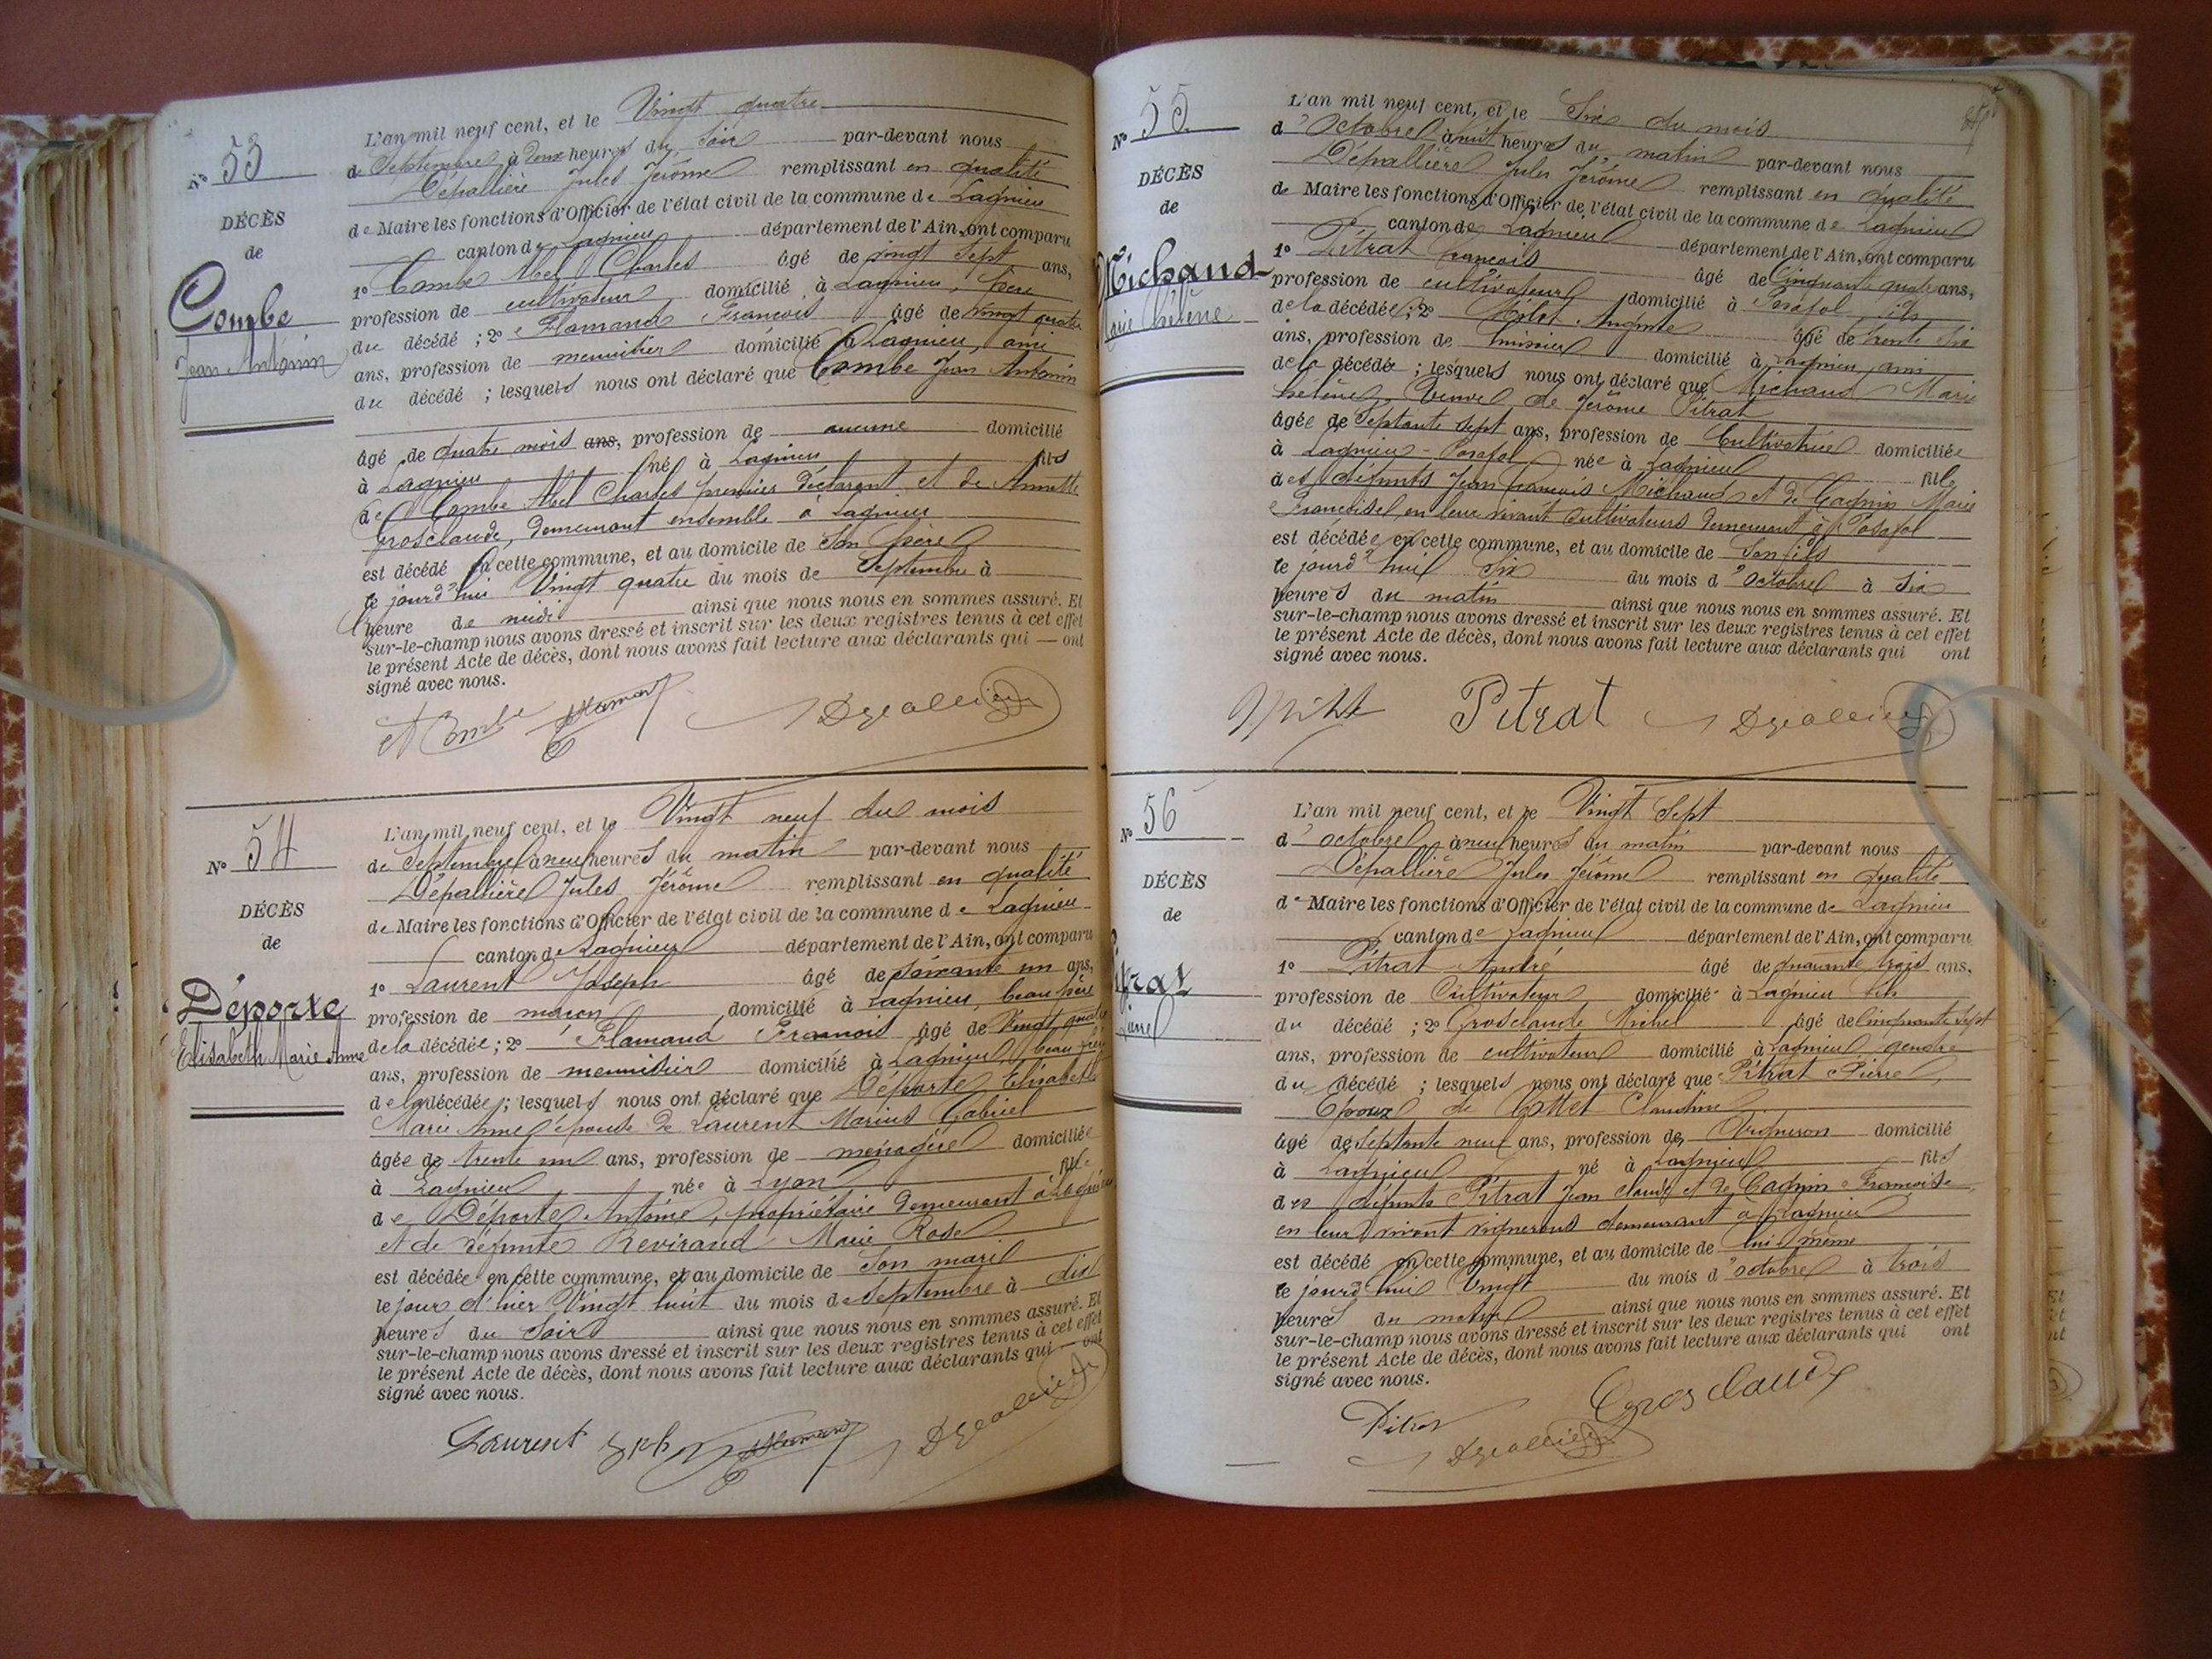 N° 53
DÉCÈS
de
Combe
Jean Antonin
L'an mil neuf cent, et le Vingt quatre
de Septembre à deux heures du soir par-devant nous
Dépallière Jules Jérôme remplissant en qualité
de Maire les fonctions d'Officier de l'état civil de la commune de Lagnieu
canton de Lagnieu département de l'Ain, ont comparu
1° Combe Abel Charles âgé de vingt sept ans,
profession de cultivateur domicilié à Lagnieu, père
du décédé ; 2° Flamand François âgé de vingt quatre
ans, profession de menuisier domicilié à Lagnieu, ami
du décédé ; lesquels nous ont déclaré que Combe Jean Antonin
âgé de quatre mois ans, profession de aucune domicilié
à Lagnieu né à Lagnieu fils
de Combe Abel Charles premier déclarant et de Annette
Grosclaude, demeurant ensemble à Lagnieu
est décédé en cette commune, et au domicile de son père
le jourd'hui Vingt quatre du mois de Septembre à
heure de midi ainsi que nous nous en sommes assuré. Et
sur-le-champ nous avons dressé et inscrit sur les deux registres tenus à cet effet
le présent Acte de décès, dont nous avons fait lecture aux déclarants qui — ont
signé avec nous.
A Combe Flamand Dépallière
N° 54
DÉCÈS
de
Déporte
Elisabeth Marie Anne
L'an mil neuf cent, et le Vingt neuf du mois
de Septembre à neuf heures du matin par-devant nous
Dépallière Jules Jérôme remplissant en qualité
de Maire les fonctions d'Officier de l'état civil de la commune de Lagnieu
canton de Lagnieu département de l'Ain, ont comparu
1° Laurent Joseph âgé de soixante un ans,
profession de maçon domicilié à Lagnieu, beau père
de la décédée ; 2° Flamand François âgé de Vingt quatre
ans, profession de menuisier domicilié à Lagnieu, beau frère
de la décédée ; lesquels nous ont déclaré que Déporte Elisabeth
Marie Anne épouse de Laurent Marius Gabriel
âgée de trente un ans, profession de ménagère domiciliée
à Lagnieu née à Lyon fille
de Déporte Antoine, propriétaire demeurant à Lagnieu
et de défunte Reviraud Marie Rose
est décédée en cette commune, et au domicile de son mari
le jour d'hier Vingt huit du mois de Septembre à dix
heures du soir ainsi que nous nous en sommes assuré. Et
sur-le-champ nous avons dressé et inscrit sur les deux registres tenus à cet effet
le présent Acte de décès, dont nous avons fait lecture aux déclarants qui — ont
signé avec nous.
Laurent Jph Flamand Dépallière
N° 55
DÉCÈS
de
Michaud
Marie Hélène
L'an mil neuf cent, et le Six du mois
d'Octobre à huit heures du matin par-devant nous
Dépallière Jules Jérôme remplissant en qualité
de Maire les fonctions d'Officier de l'état civil de la commune de Lagnieu
canton de Lagnieu département de l'Ain, ont comparu
1° Pitrat François âgé de Cinquante quatre ans,
profession de cultivateur domicilié à Posafol, fils
de la décédée ; 2° âgé de trente six
ans, profession de domicilié à Lagnieu ami
de la décédée ; lesquels nous ont déclaré que Michaud Marie
hélène, Veuve de Jérôme Pitrat
âgée de Septante sept ans, profession de Cultivatrice domiciliée
à Lagnieu - Posafol née à Lagnieu fille
des défunts Jean François Michaud et de Gagnin Marie
Françoise, en leur vivant cultivateurs demeurant à Posafol
est décédée en cette commune, et au domicile de son fils
le jourd'hui Six du mois d'Octobre à six
heures du matin ainsi que nous nous en sommes assuré. Et
sur-le-champ nous avons dressé et inscrit sur les deux registres tenus à cet effet
le présent Acte de décès, dont nous avons fait lecture aux déclarants qui ont
signé avec nous.
Pitrat Dépallière
N° 56
DÉCÈS
de
itrat
L'an mil neuf cent, et le Vingt Sept
d'octobre à neuf heures du matin par-devant nous
Dépallière Jules Jérôme remplissant en qualité
de Maire les fonctions d'Officier de l'état civil de la commune de Lagnieu
canton de Lagnieu département de l'Ain, ont comparu
1° Pitrat André âgé de quarante trois ans,
profession de Cultivateur domicilié à Lagnieu fils
du décédé ; 2° Grosclaude Michel âgé de cinquante sept
ans, profession de cultivateur domicilié à Lagnieu, gendre
du décédé ; lesquels nous ont déclaré que Pitrat Pierre,
Epoux de Cottet Claudine
âgé de Septante neuf ans, profession de Vigneron domicilié
à Lagnieu né à Lagnieu fils
des défunts Pitrat Jean Claude et de Gagnin Françoise,
en leur vivant vignerons demeurant à Lagnieu
est décédé en cette commune, et au domicile de lui même
le jourd'hui Vingt du mois d'octobre à trois
heures du matin ainsi que nous nous en sommes assuré. Et
sur-le-champ nous avons dressé et inscrit sur les deux registres tenus à cet effet
le présent Acte de décès, dont nous avons fait lecture aux déclarants qui ont
signé avec nous.
Pitrat Grosclaude
Dépallière